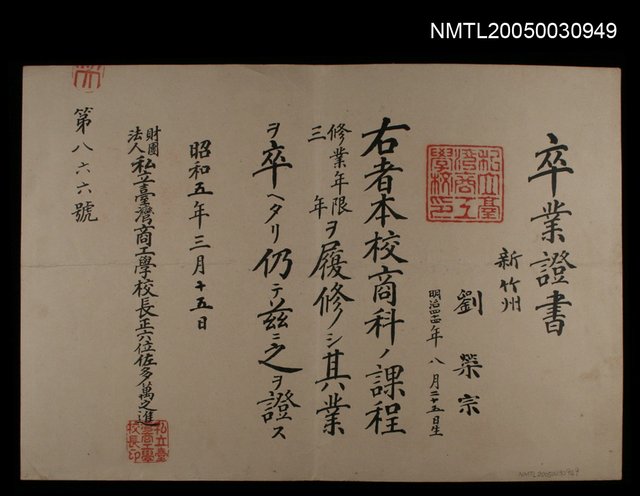 NMTL20050030949
卒業證書
新竹州
劉榮宗
明治四四年八月二十五日生
右者本校商科ノ課程
修業年限三年ヲ履修シ其業
ヲ卒ヘタリ仍テ茲ニ之ヲ證ス
昭和五年三月十五日
財團法人私立臺灣商工學校長正六位佐多萬之進
第八六六號
私立臺灣商工學校印
私立臺灣商工學校長印
NMTL20050030949